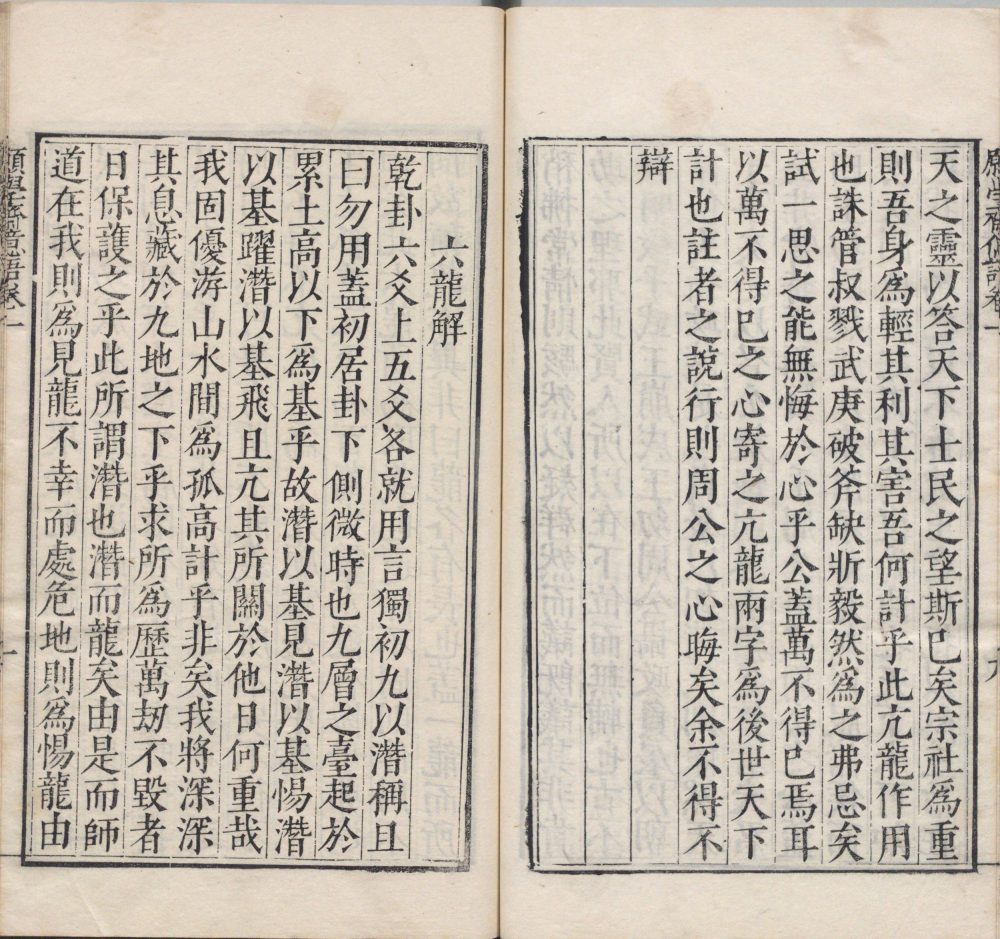 天之靈以答天下士民之望斯已矣宗社為重
則吾身為輕其利其害吾何計乎此亢龍作用
也誅管叔戮武庚破斧缺斨毅然為之弗忌矣
試一思之能無悔於心乎公蓋萬不得已焉耳
以萬不得已之心寄之亢龍兩字為後世天下
計也註者之說行則周公之心晦矣余不得不
辯
六龍解
乾卦六爻上五爻各就用言獨初九以潛稱且
曰勿用蓋初居卦下側微時也九層之臺起於
累土高以下為基乎故潛以基見潛以基惕潛
以基躍潛以基飛且亢其所關於他日何重哉
我固優游山水間為孤高計乎非矣我將深深
其息藏於九地之下乎求所為歷萬劫不毀者
日保護之乎此所謂潛也潛而龍矣由是而師
道在我則為見龍不幸而處危地則為惕龍由